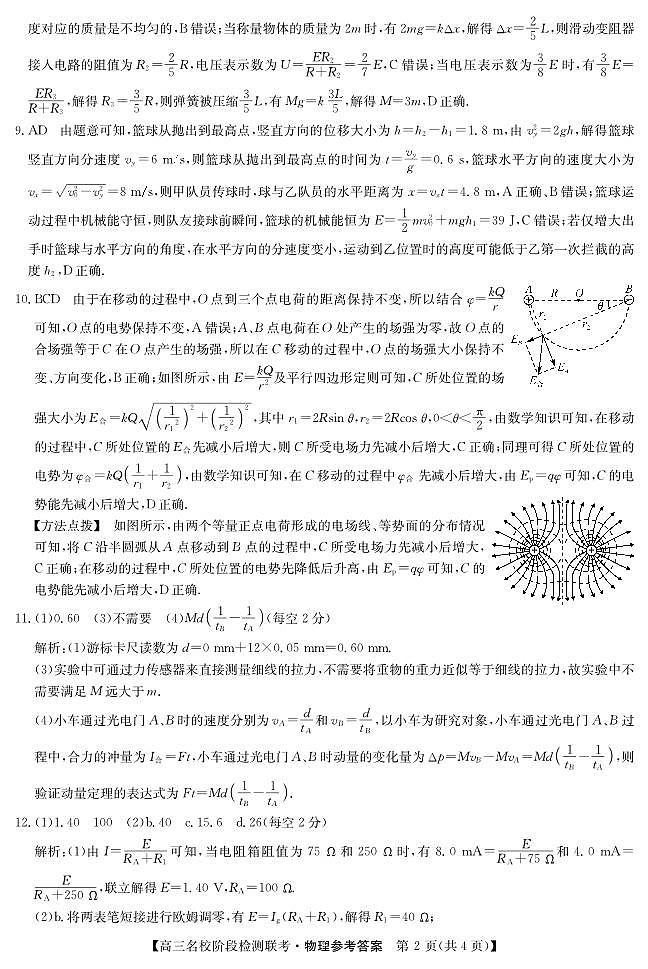 度对应的质量是不均匀的,B错误;当称量物体的质量为2m时,有2mg=kΔx,解得Δx=\frac{2}{5}L,则滑动变阻器
接入电路的阻值为R₂=\frac{2}{5}R,电压表示数为U=\frac{ER₂}{R+R₂}=\frac{2}{7}E,C错误;当电压表示数为\frac{3}{8}E时,有\frac{3}{8}E=
\frac{ER₃}{R+R₃},解得R₃=\frac{3}{5}R,则弹簧被压缩\frac{3}{5}L,有Mg=k\frac{3L}{5},解得M=3m,D正确.
9. AD 由题意可知,篮球从抛出到最高点,竖直方向的位移大小为h=h₂-h₁=1.8 m,由v_y²=2gh,解得篮球
竖直方向分速度v_y=6 m/s,则篮球从抛出到最高点的时间为t=\frac{v_y}{g}=0.6 s,篮球水平方向的速度大小为
v_x=\sqrt{v₀²-v_y²}=8 m/s,则甲队员传球时,球与乙队员的水平距离为x=v_xt=4.8 m,A正确、B错误;篮球运
动过程中机械能守恒,则队友接球前瞬间,篮球的机械能恒为E=\frac{1}{2}mv₀²+mgh₁=39 J,C错误;若仅增大出
手时篮球与水平方向的角度,在水平方向的分速度变小,运动到乙位置时的高度可能低于乙第一次拦截的高
度h₂,D正确.
10. BCD 由于在移动的过程中,O点到三个点电荷的距离保持不变,所以结合φ=\frac{kQ}{r}
可知,O点的电势保持不变,A错误;A、B点电荷在O处产生的场强为零,故O点的
合场强等于C在O点产生的场强,所以在C移动的过程中,O点的场强大小保持不
变、方向变化,B正确;如图所示,由E=\frac{kQ}{r²}及平行四边形定则可知,C所处位置的场
A R O θ B
r₁ r₂
E_B E_A
E合
强大小为E合=kQ\sqrt{(\frac{1}{r₁²})²+(\frac{1}{r₂²})²},其中r₁=2Rsin θ,r₂=2Rcos θ,0<θ<\frac{π}{2},由数学知识可知,在移动
的过程中,C所处位置的E合先减小后增大,则C所受电场力先减小后增大,C正确;同理可得C所处位置的
电势为φ合=kQ(\frac{1}{r₁}+\frac{1}{r₂}),由数学知识可知,在C移动的过程中φ合先减小后增大,由E_p=qφ可知,C的电
势能先减小后增大,D正确.
【方法点拨】 如图所示,由两个等量正点电荷形成的电场线、等势面的分布情况
可知,将C沿半圆弧从A点移动到B点的过程中,C所受电场力先减小后增大,
C正确;在移动的过程中,C所处位置的电势先降低后升高,由E_p=qφ可知,C的
电势能先减小后增大,D正确.
11. (1)0.60 (3)不需要 (4)Md(\frac{1}{t_B}-\frac{1}{t_A})(每空2分)
解析:(1)游标卡尺读数为d=0 mm+12×0.05 mm=0.60 mm.
(3)实验中可通过力传感器来直接测量细线的拉力,不需要将重物的重力近似等于细线的拉力,故实验中不
需要满足M远大于m.
(4)小车通过光电门A、B时的速度分别为v_A=\frac{d}{t_A}和v_B=\frac{d}{t_B},以小车为研究对象,小车通过光电门A、B过
程中,合力的冲量为I合=Ft,小车通过光电门A、B时动量的变化量为Δp=Mv_B-Mv_A=Md(\frac{1}{t_B}-\frac{1}{t_A}),则
验证动量定理的表达式为Ft=Md(\frac{1}{t_B}-\frac{1}{t_A}).
12. (1)1.40 100 (2)b.40 c.15.6 d.26(每空2分)
解析:(1)由I=\frac{E}{R_A+R₁}可知,当电阻箱阻值为75 Ω和250 Ω时,有8.0 mA=\frac{E}{R_A+75 Ω}和4.0 mA=
\frac{E}{R_A+250 Ω},联立解得E=1.40 V,R_A=100 Ω.
(2)b.将两表笔短接进行欧姆调零,有E=I_g(R_A+R₁),解得R₁=40 Ω;
【高三名校阶段检测联考·物理参考答案 第2页(共4页)】